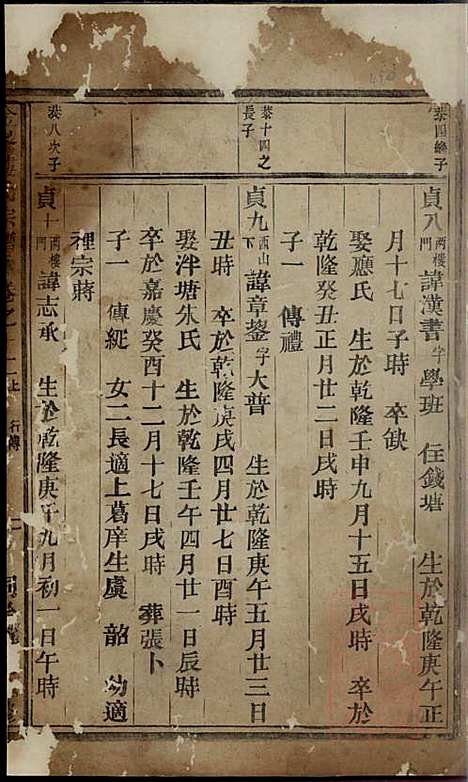 恭四繼子
貞八 兩樓門 諱漢書 字學班 住錢塘 生於乾隆庚午正
月十七日子時 卒缺
娶應氏 生於乾隆壬申九月十五日戌時 卒於
乾隆癸丑正月廿二日戌時
子一 傳禮
恭十四之長子
貞九 西山下 諱章鋆 字大普 生於乾隆庚午五月廿三日
丑時 卒於乾隆庚戌四月廿七日酉時
娶泮塘朱氏 生於乾隆壬午四月廿一日辰時
卒於嘉慶癸酉十二月十七日戌時 葬張卜
子一 傳縰 女二長適上葛庠生虞 韶 幼適
裡宗蔣
恭八次子
貞十 兩樓門 諱志承 生於乾隆庚午九月初一日午時
卷之 上 行傳